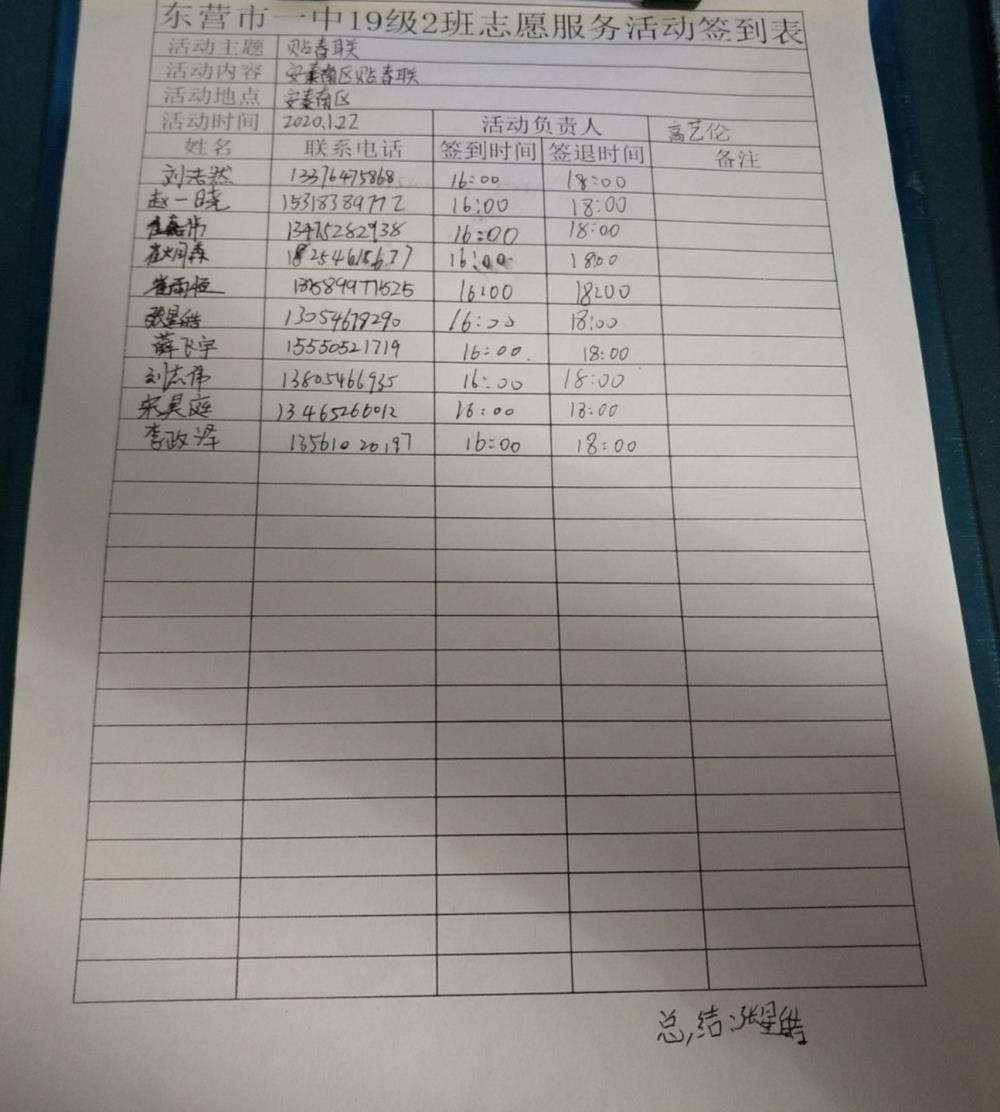 东营市一中19级2班志愿服务活动签到表
活动主题 贴春联
活动内容 安泰南区贴春联
活动地点 安泰南区
活动时间 2020.1.22 活动负责人 高艺伦
姓名 联系电话 签到时间 签退时间 备注
刘浩然 13376475868 16:00 18:00
赵一晓 15318389772 16:00 18:00
崔嘉伟 13475282938 16:00 18:00
崔炯森 18254615677 16:00 18:00
崔雨恒 16:00 18:00
张星皓 13054678290 16:00 18:00
薛飞宇 15550521719 16:00. 18:00
刘志伟 13805466935 16:00 18:00
宋昊庭 13465266012 16:00 18:00
李政泽 13561020197 16:00 18:00
总结:张星皓